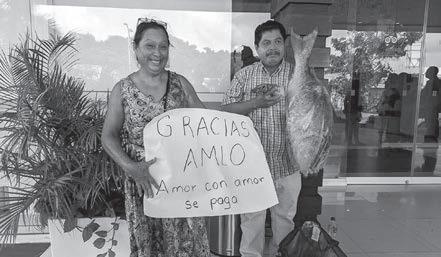 GRACIAS
AMLO
Amor con amor
se paga